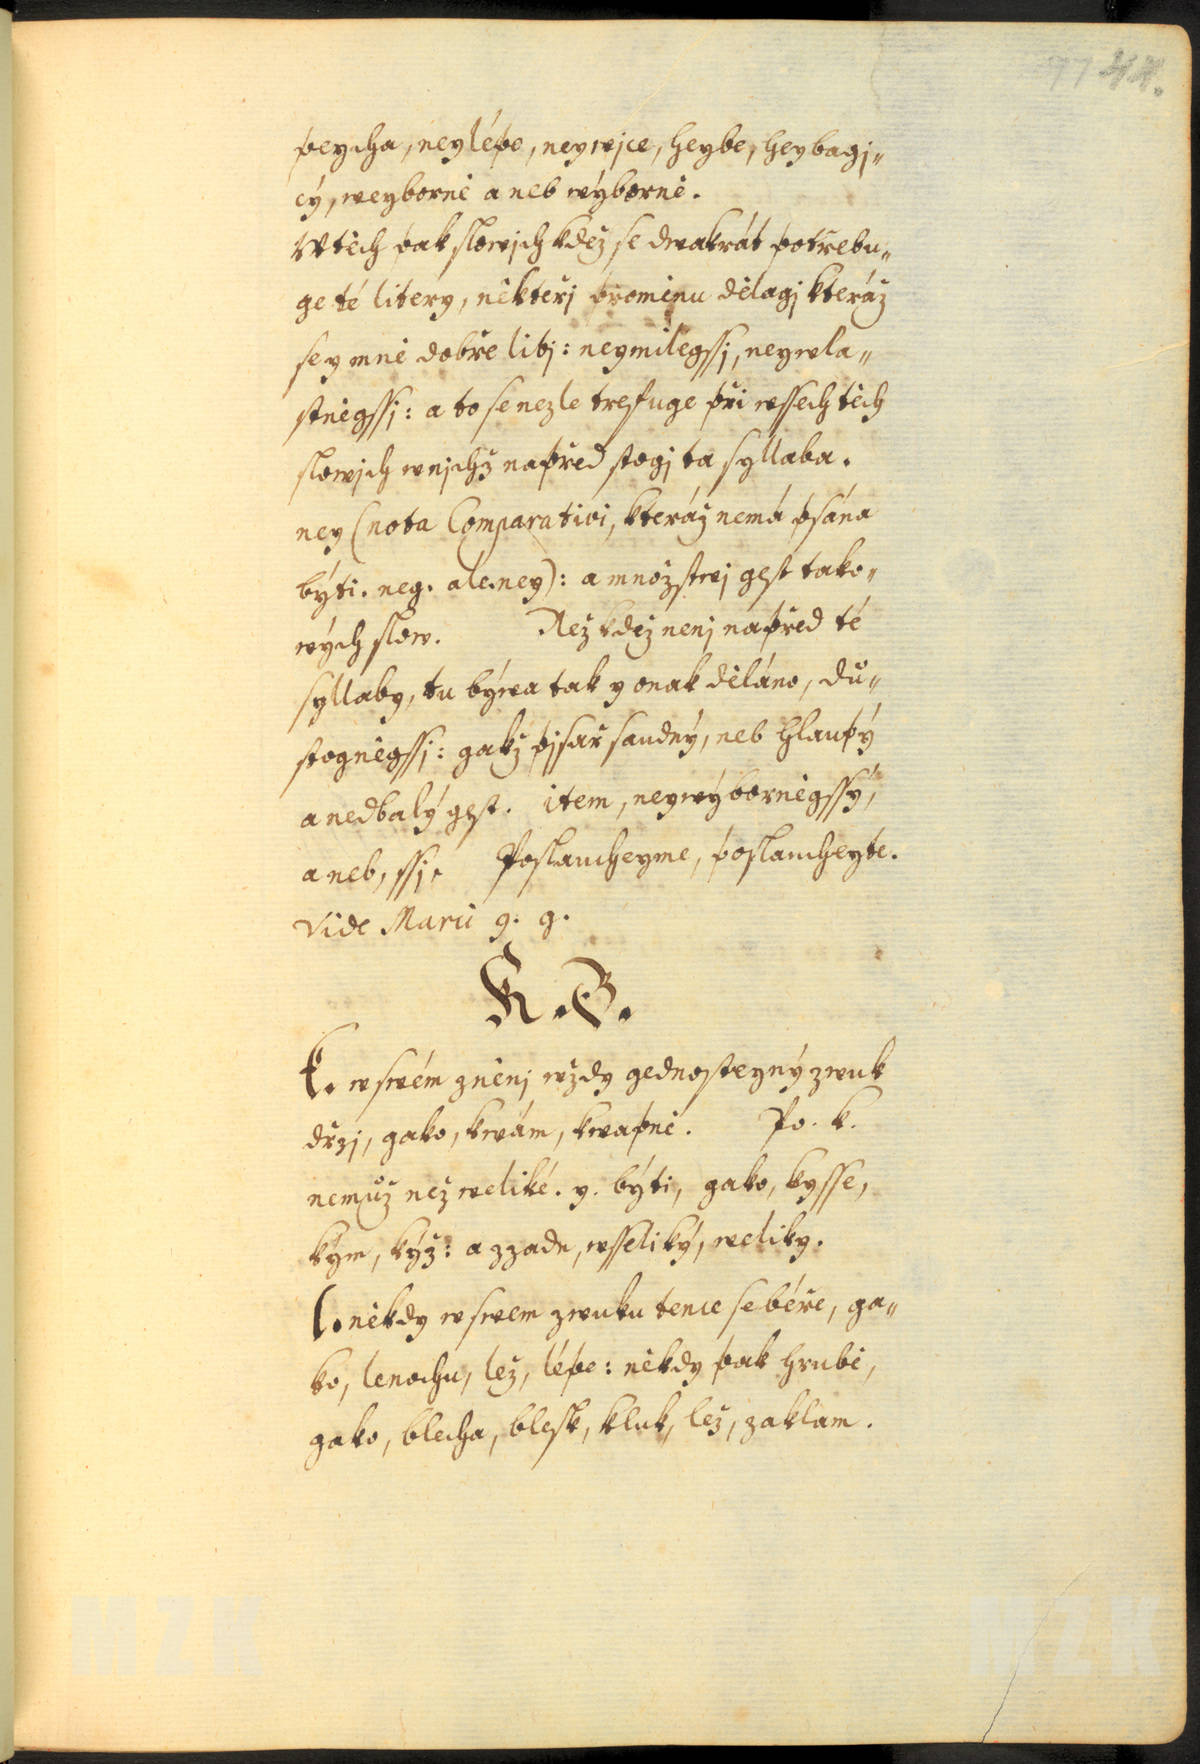 77 44.
peycha, neylépe, neywjce, heybe, heybagj„
cý, weyborně aneb wýborně.
W těch pak slowjch kdež se dwakrát potřebu„
ge té litery, někteřj proměnu dělagj kteráž
se y mně dobře libj: neymilegssj, neywla„
stněgssj: a to se nezle trefuge při wssech těch
slowjch w njchž napřed stogj ta syllaba.
ney (nota Comparativi, kteráž nemá psána
býti. neg. ale. ney): a množstwj gest tako„
wých slow. Než kdež nenj napřed té
syllaby, tu býwa tak y onak děláno, dů„
stogněgssj: gakž pjsař saudný, neb hlaupý
a nedbalý gest. item, neywýborněgssý,
aneb, ssj. Poslaucheyme, poslaucheyte.
Vide Marii g. g.
K. B.
k. w swém zněnj wždy gednosteyný zwuk
držj, gako, kwám, kwapně. Po. k.
nemůž než weliké. y. býti, gako, kysse,
kým, kýž: a zzadu, wsseliký, weliky.
l. někdy w swem zwuku tence se béře, ga„
ko, lenochu, lež, lépe: někdy pak hrubě,
gako, blecha, blesk, kluk, lež, zaklam.
MZK
MZK